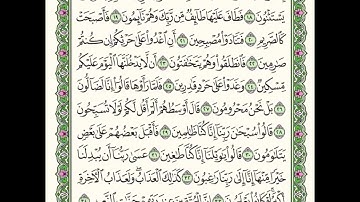 يَسْتَثْنُونَ ١٨ فَطَافَ عَلَيْهَا طَائِفٌ مِّن رَّبِّكَ وَهُمْ نَائِمُونَ ١٩ فَأَصْبَحَتْ
كَالصَّرِيمِ ٢٠ فَتَنَادَوْا مُصْبِحِينَ ٢١ أَنِ اغْدُوا عَلَىٰ حَرْثِكُمْ إِن كُنتُمْ
صَارِمِينَ ٢٢ فَانطَلَقُوا وَهُمْ يَتَخَافَتُونَ ٢٣ أَن لَّا يَدْخُلَنَّهَا الْيَوْمَ عَلَيْكُم
مِّسْكِينٌ ٢٤ وَغَدَوْا عَلَىٰ حَرْدٍ قَادِرِينَ ٢٥ فَلَمَّا رَأَوْهَا قَالُوا إِنَّا لَضَالُّونَ
٢٦ بَلْ نَحْنُ مَحْرُومُونَ ٢٧ قَالَ أَوْسَطُهُمْ أَلَمْ أَقُل لَّكُمْ لَوْلَا تُسَبِّحُونَ
٢٨ قَالُوا سُبْحَانَ رَبِّنَا إِنَّا كُنَّا ظَالِمِينَ ٢٩ فَأَقْبَلَ بَعْضُهُمْ عَلَىٰ بَعْضٍ
يَتَلَاوَمُونَ ٣٠ قَالُوا يَا وَيْلَنَا إِنَّا كُنَّا طَاغِينَ ٣١ عَسَىٰ رَبُّنَا أَن يُبْدِلَنَا
خَيْرًا مِّنْهَا إِنَّا إِلَىٰ رَبِّنَا رَاغِبُونَ ٣٢ كَذَٰلِكَ الْعَذَابُ وَلَعَذَابُ الْآخِرَةِ